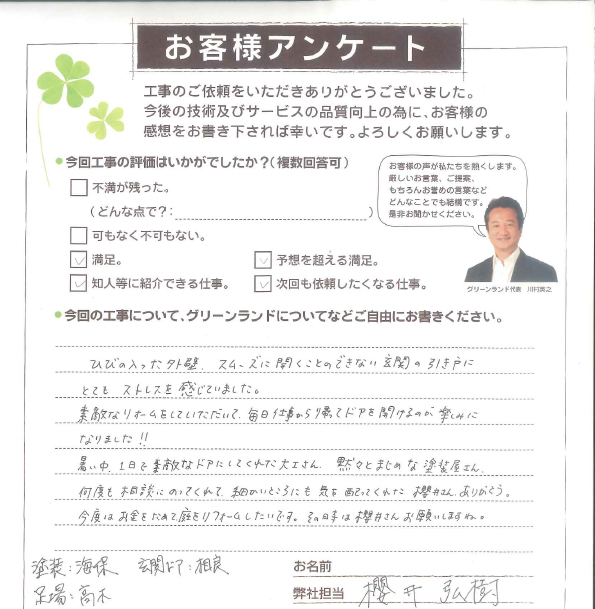 お客様アンケート
工事のご依頼をいただきありがとうございました。
今後の技術及びサービスの品質向上の為に、お客様の
感想をお書き下されば幸いです。よろしくお願いします。
●今回工事の評価はいかがでしたか？(複数回答可)
不満が残った。
(どんな点で？: )
可もなく不可もない。
満足。
予想を超える満足。
知人等に紹介できる仕事。
次回も依頼したくなる仕事。
お客様の声が私たちを熱くします。
厳しいお言葉、ご提案、
もちろんお誉めの言葉など
どんなことでも結構です。
是非お聞かせください。
グリーンランド代表 川村真之
●今回の工事について、グリーンランドについてなどご自由にお書きください。
ひびの入った外壁、スムーズに開くことのできない玄関の引き戸に
とても ストレスを感じていました。
素敵なリホームをしていただいて、毎日仕事から帰ってドアを開けるのが楽しみに
なりました!!
暑い中、1日で素敵なドアにしてくれた大工さん、黙々とまじめな塗装屋さん、
何度も相談にのってくれて、細かいところにも気を配ってくれた櫻井さん、ありがとう。
今度はお金をためて庭をリフォームしたいです。その時は櫻井さんお願いしますね。
塗装:海保 玄関ドア:相良
足場:高木
お名前
弊社担当 櫻井 弘樹